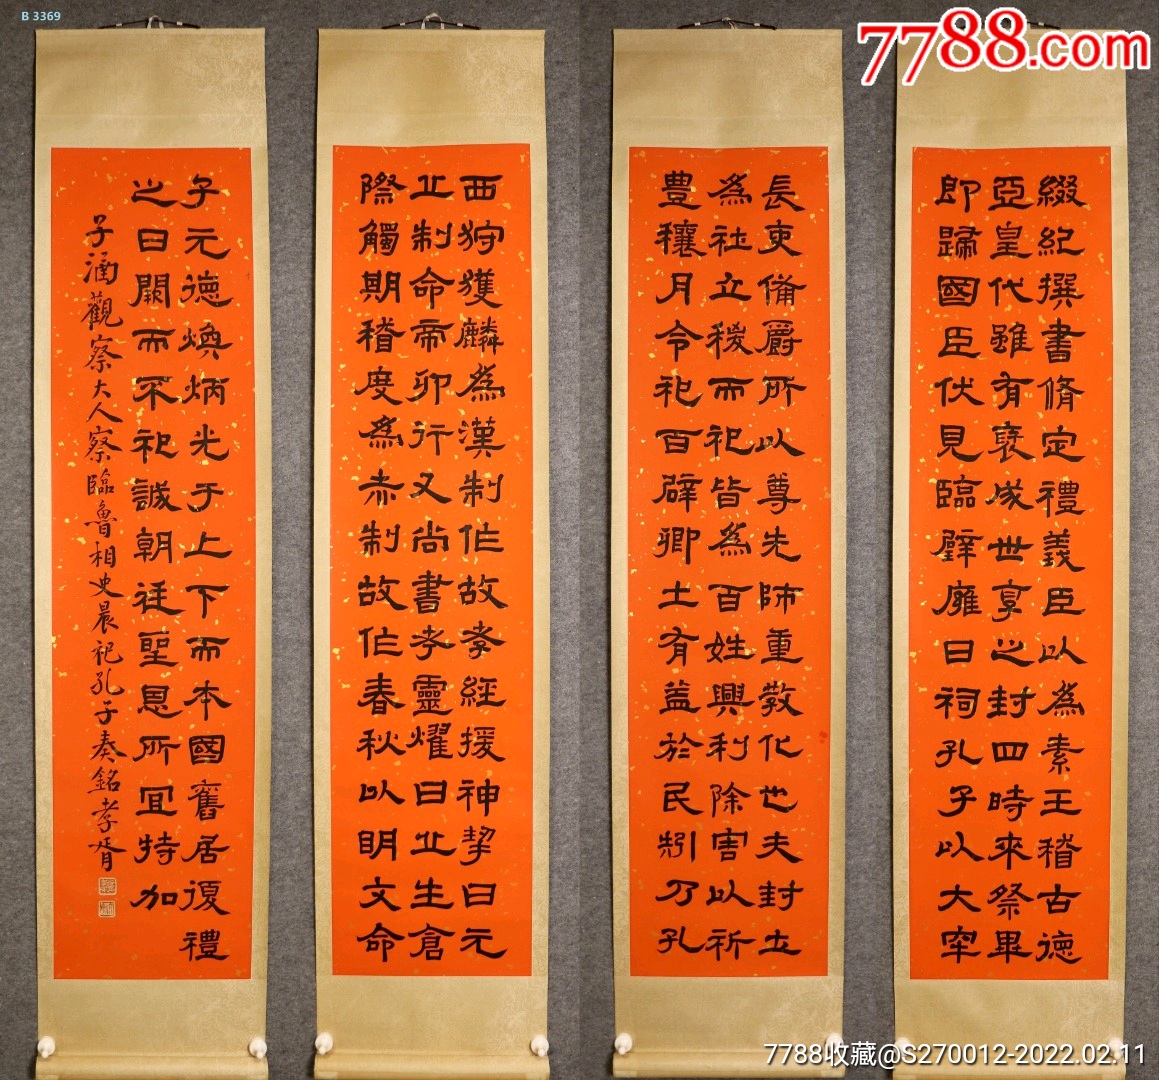 B 3369
7788.com
綴紀撰書脩定禮義臣以為素王稽古德
亞皇代雖有褒成世享之封四時來祭畢
即歸國臣伏見臨辟廱日祠孔子以大牢
長吏備爵所以尊先師重教化也夫封土
為社立稷而祀皆為百姓興利除害以祈
豊穰月令祀百辟卿士有益於民矧乃孔
西狩獲麟為漢制作故孝經援神挈曰元
丘制命帝卯行又尚書考靈燿曰丘生倉
際觸期稽度為赤制故作春秋以明文命
子元德煥炳光于上下而本國舊居復禮
之日闕而不祀誠朝廷聖恩所宜特加
子涵觀察大人察臨魯相史晨祀孔子奏銘孝胥
7788收藏@S270012-2022.02.11